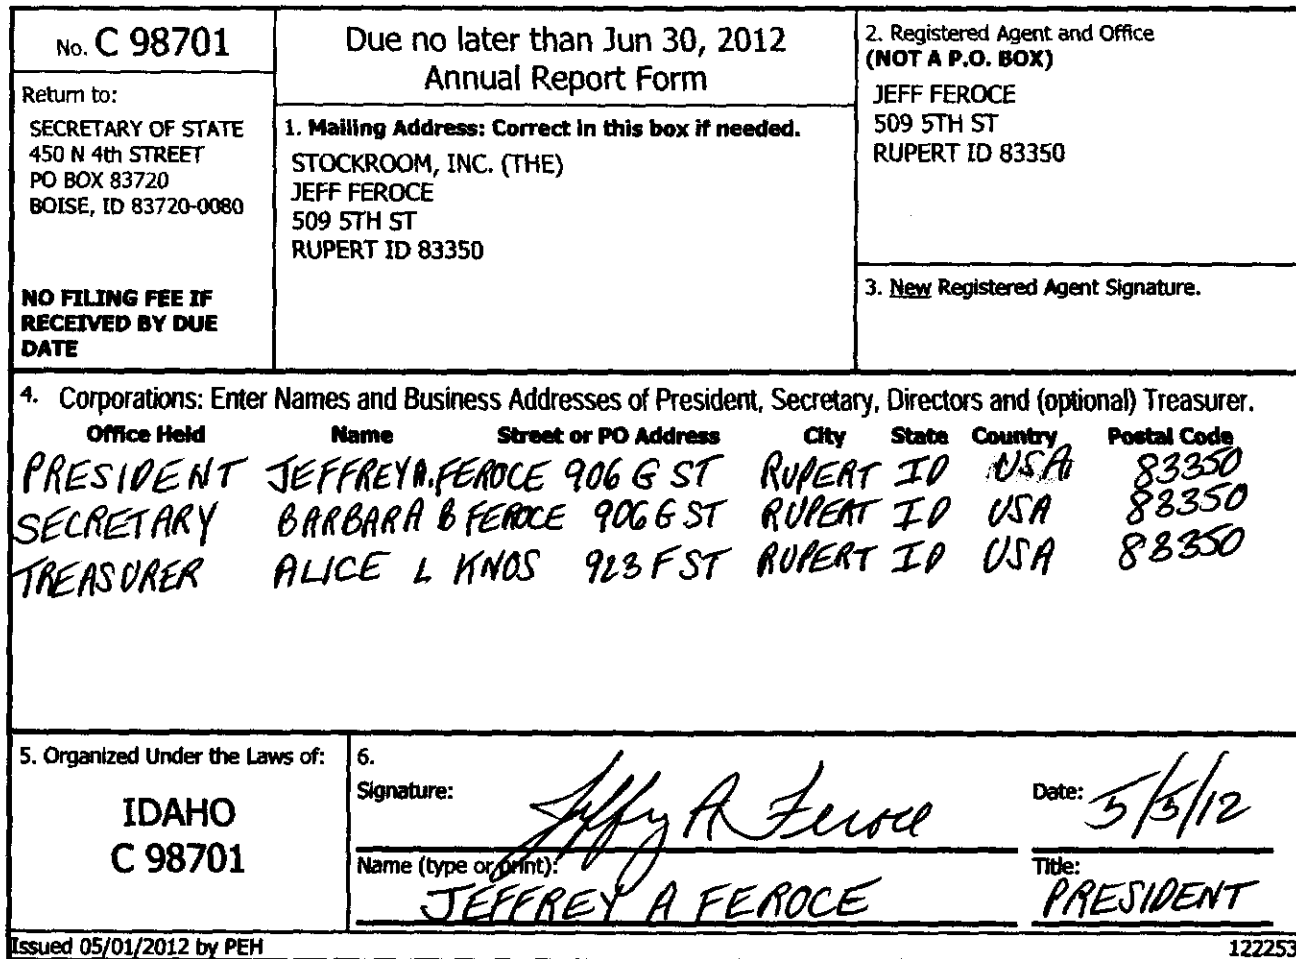 No. C 98701
Return to:
SECRETARY OF STATE
450 N 4th STREET
PO BOX 83720
BOISE, ID 83720-0080
NO FILING FEE IF
RECEIVED BY DUE
DATE
Due no later than Jun 30, 2012
Annual Report Form
1. Mailing Address: Correct in this box if needed.
STOCKROOM, INC. (THE)
JEFF FEROCE
509 5TH ST
RUPERT ID 83350
2. Registered Agent and Office
(NOT A P.O. BOX)
JEFF FEROCE
509 5TH ST
RUPERT ID 83350
3. New Registered Agent Signature.
4. Corporations: Enter Names and Business Addresses of President, Secretary, Directors and (optional) Treasurer.
Office Held Name Street or PO Address City State Country Postal Code
PRESIDENT JEFFREY A. FEROCE 906 G ST RUPERT ID USA 83350
SECRETARY BARBARA B FEROCE 906 G ST RUPERT ID USA 83350
TREASURER ALICE L KNOS 923 F ST RUPERT ID USA 83350
5. Organized Under the Laws of:
IDAHO
C 98701
6.
Signature: Jeffrey A Feroce Date: 5/5/12
Name (type or print): Title:
JEFFREY A FEROCE PRESIDENT
Issued 05/01/2012 by PEH 122253